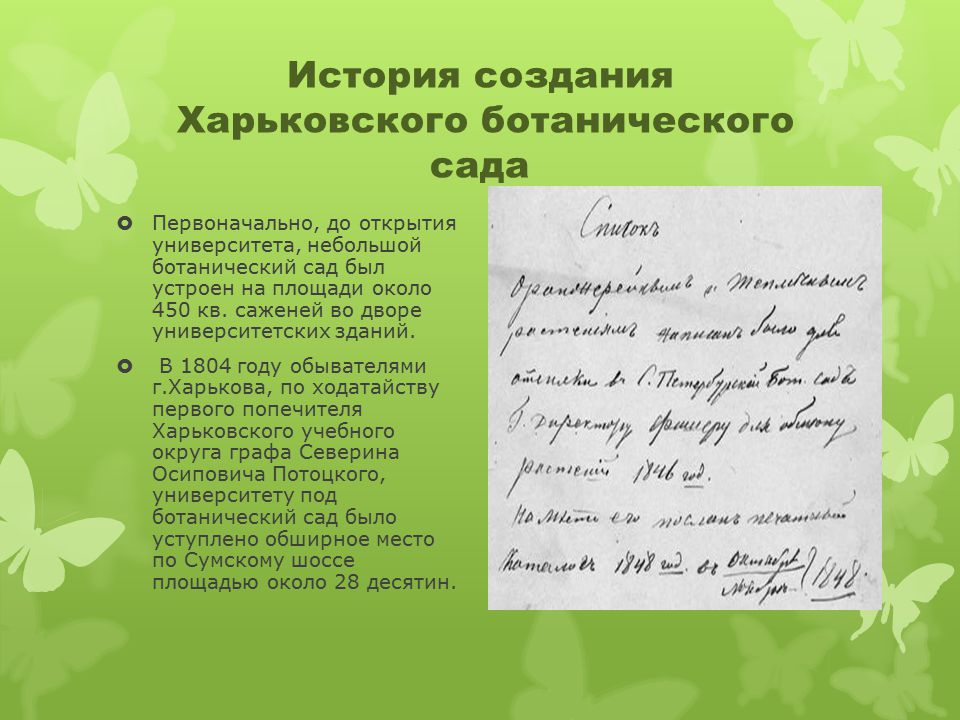 История создания
Харьковского ботанического
сада
Первоначально, до открытия
университета, небольшой
ботанический сад был
устроен на площади около
450 кв. саженей во дворе
университетских зданий.
В 1804 году обывателями
г.Харькова, по ходатайству
первого попечителя
Харьковского учебного
округа графа Северина
Осиповича Потоцкого,
университету под
ботанический сад было
уступлено обширное место
по Сумскому шоссе
площадью около 28 десятин.
Списокъ
Оранжерейнымъ и Тепличнымъ
растеніямъ написанъ было для
отсылки въ С. Петербургскій Бот. садъ
Г. Директору Фишеру для обмену
растеній 1846 год.
На место его посланъ печатный
Каталогъ 1848 год. въ Октябре
Ноябре 1848